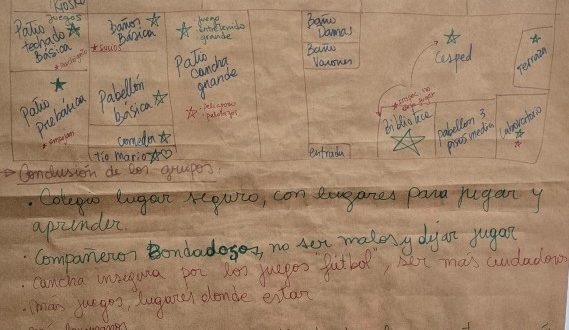 Kiosko
juegos
Patio
techado
Básica
Baños
Básica
* sucios
juego
entretenido
grande
Patio
cancha
grande
• Peligroso
• pelotazos
Baño
Damas
Baño
Varones
Cesped
Terraza
Patio
Prebásica
* empujan
Pabellón
básica
comedor
tío Mario
entrada
Biblioteca
Pabellon 3
pisos media
Laboratorio
→ Conclusión de los grupos:
• Colegio lugar seguro, con lugares para jugar y
aprender.
• Compañeros Bondadosos, no ser malos y dejar jugar
• cancha insegura por los juegos "fútbol", ser más cuidadoros
• más juegos, lugares donde estar